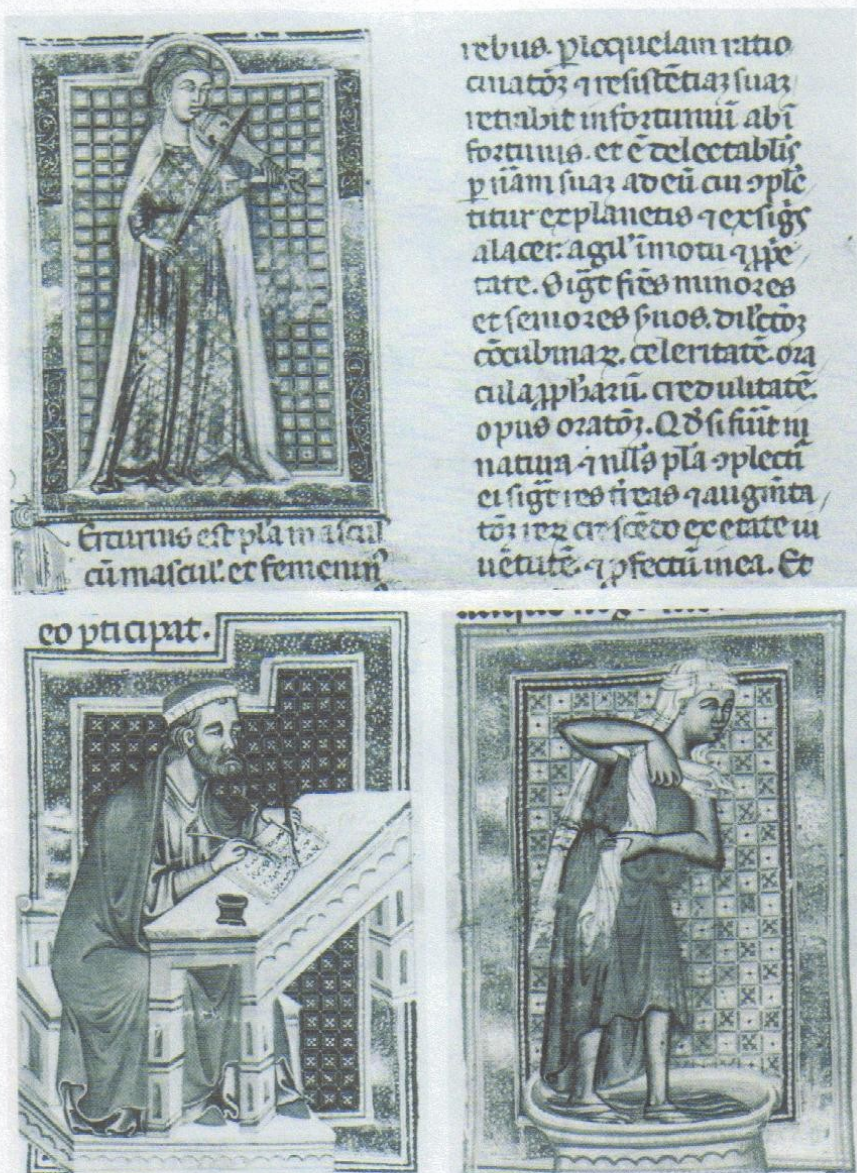 rebus. ꝑ loquelam ratio
cinatoꝝ ⁊ resistētiaꝫ suaꝫ
retrahit infortuniū ab ī
fortuniis. et ē delectabilis
ꝑ nām suaꝫ ad eū cui ꝯple
titur ex planetis ⁊ ex sigs
alacer. agil' ī motu ⁊
tate. Sigt frēs minores
et seniores
cōcubinaꝝ. celeritatē. ora
cula ꝓpharū. credulitatē.
opus oratoꝝ. Qd si fūit in
natura ⁊ nlls pla ꝯplecti
ei sigt res tr̄eas ⁊ augm̄ta
ex etate iu
uētutē. ⁊ ꝓfectū in ea. Et
Ercurius est pla mascul
cū mascul'. et femenin
eo pticipat.